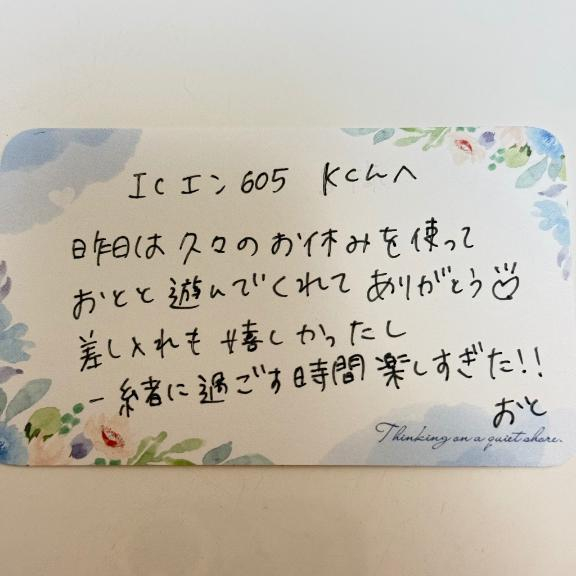 ICエン605 Kくんへ
昨日は久々のお休みを使って
おとと遊んでくれてありがとう
差し入れも嬉しかったし
一緒に過ごす時間楽しすぎた!!
おと
Thinking on a quiet shore.